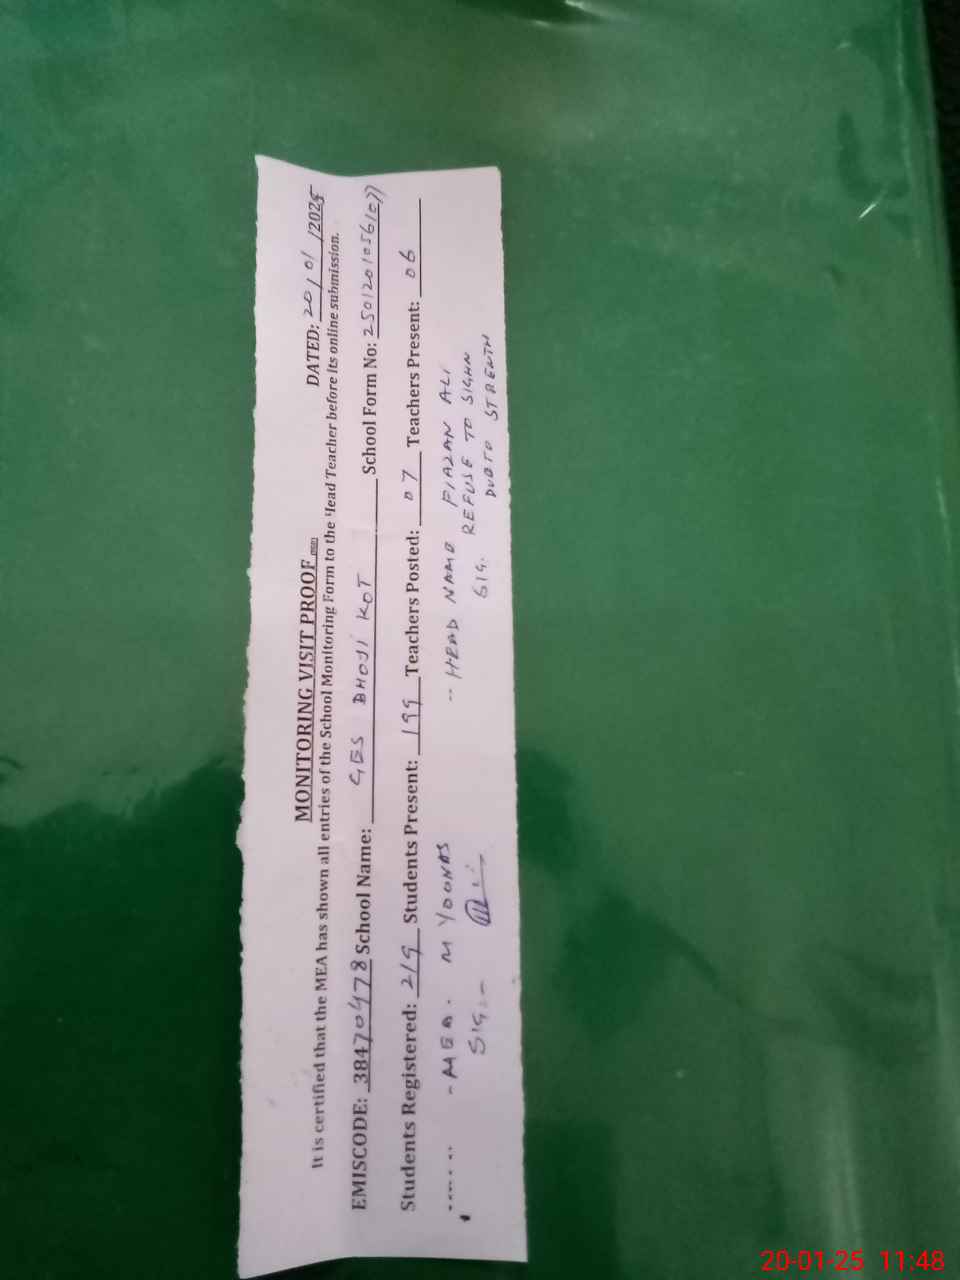 MONITORING VISIT PROOF
DATED: 20/01/2025
It is certified that the MEA has shown all entries of the School Monitoring Form to the Head Teacher before its online submission.
EMISCODE: 38470478 School Name: GES BHOJI KOT School Form No: 2501201056107
Students Registered: 219 Students Present: 199 Teachers Posted: 07 Teachers Present: 06
- MEA. M YOONAS -- HEAD NAME FIAZAN ALI
SIG:- SIG. REFUSE TO SIGHN
DUO TO STRENTH
20-01-25 11:48